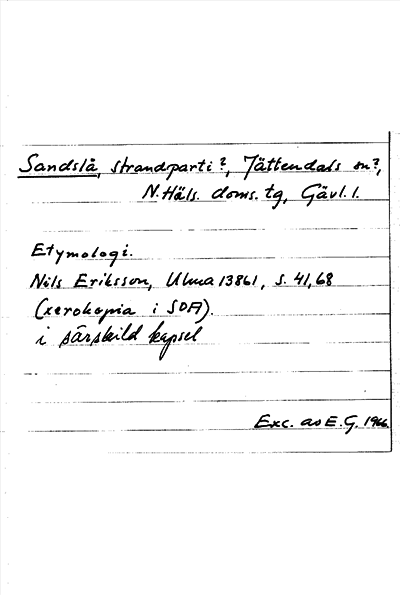 Sandslå, strandparti?, Jättendals sn?,
N. Häls. doms. tg, Gävl. l.
Etymologi.
Nils Eriksson, Ulma 13861, s. 41, 68
(xerokopia i SOA).
i särskild kapsel
Exc. av E. G. 1966.